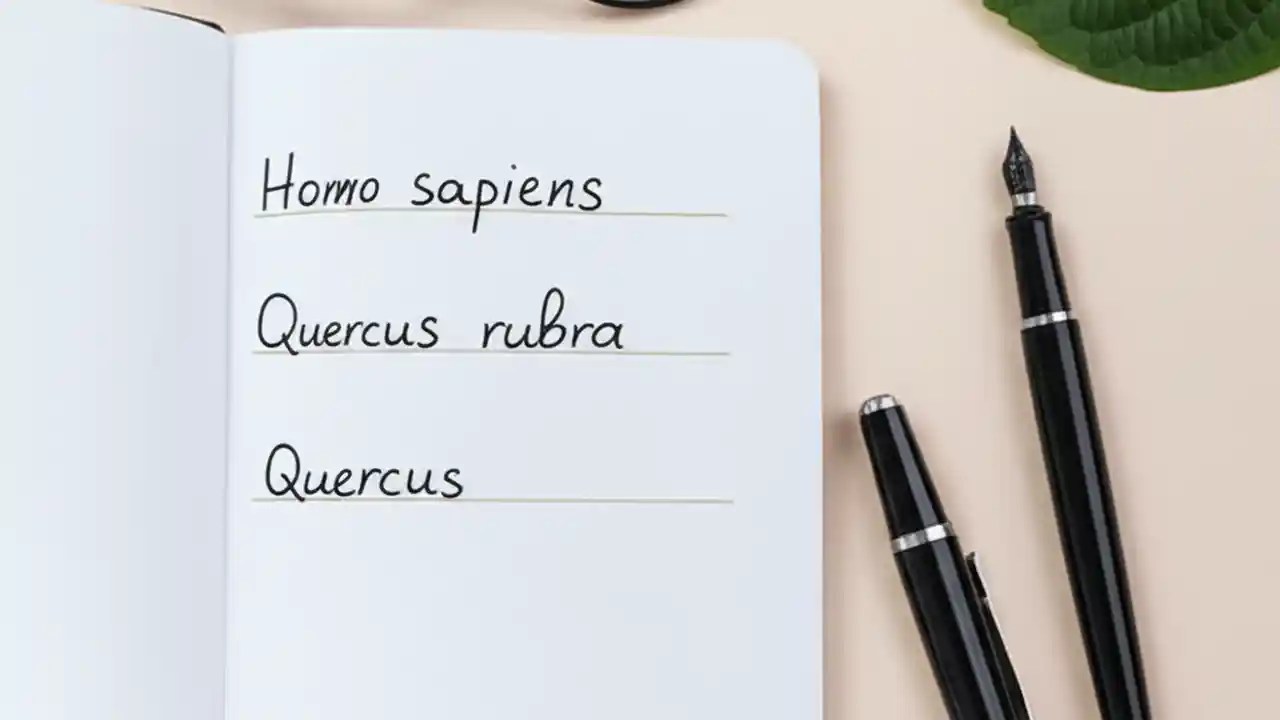 Homo sapiens
Quercus rubra
Quercus